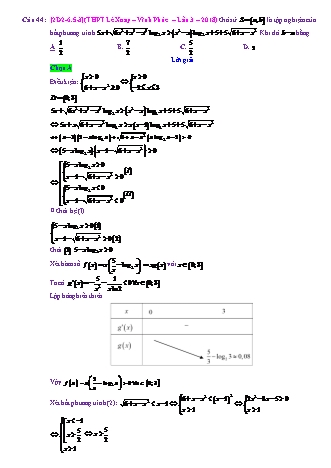 Câu 44: (2D2-6.5-3) (THPT Lê Xoay – Vĩnh Phúc – Lần 3 – 2018) Giả sử S = (a, b] là tập nghiệm của
bất phương trình 5x + √(6x² + x³ − x⁴) log₂ x > (x² − x) log₂ x + 5 + 5√(6 + x − x²). Khi đó b − a bằng
A. 1/2. B. 7/2. C. 5/2. D. 2
Lời giải
Chọn A
Điều kiện: { x > 0; 6 + x − x² ≥ 0 ⇔ { x > 0; −2 ≤ x ≤ 3
D = (0; 3]
5x + √(6x² + x³ − x⁴) log₂ x > (x² − x) log₂ x + 5 + 5√(6 + x − x²)
⇔ 5x + x√(6 + x − x²) log₂ x > x(x − 1) log₂ x + 5 + 5√(6 + x − x²)
⇔ (x − 1)(5 − x log₂ x) + √(6 + x − x²)(x log₂ x − 5) > 0
⇔ (5 − x log₂ x)(x − 1 − √(6 + x − x²)) > 0
⇔ [ { 5 − x log₂ x > 0; x − 1 − √(6 + x − x²) > 0 (I)
{ 5 − x log₂ x < 0; x − 1 − √(6 + x − x²) < 0 (II)
Giải hệ (I)
{ 5 − x log₂ x > 0 (1); x − 1 − √(6 + x − x²) > 0 (2)
Giải (1) 5 − x log₂ x > 0
Xét hàm số f(x) = x(5/x − log₂ x) = xg(x) với x ∈ (0; 3]
Ta có g'(x) = −5/x² − 1/(x ln 2) < 0 ∀x ∈ (0; 3]
Lập bảng biến thiên
x 0 3
g'(x) −
g(x) 5/3 − log₂ 3 ≈ 0,08
Vậy f(x) = x(5/x − log₂ x) > 0 ∀x ∈ (0; 3]
Xét bất phương trình (2): √(6 + x − x²) < x − 1 ⇔ { 6 + x − x² < (x − 1)²; x > 1 ⇔ { 2x² − 3x − 5 > 0; x > 1
⇔ { [ x < −1; x > 5/2; x > 1 ⇔ x > 5/2